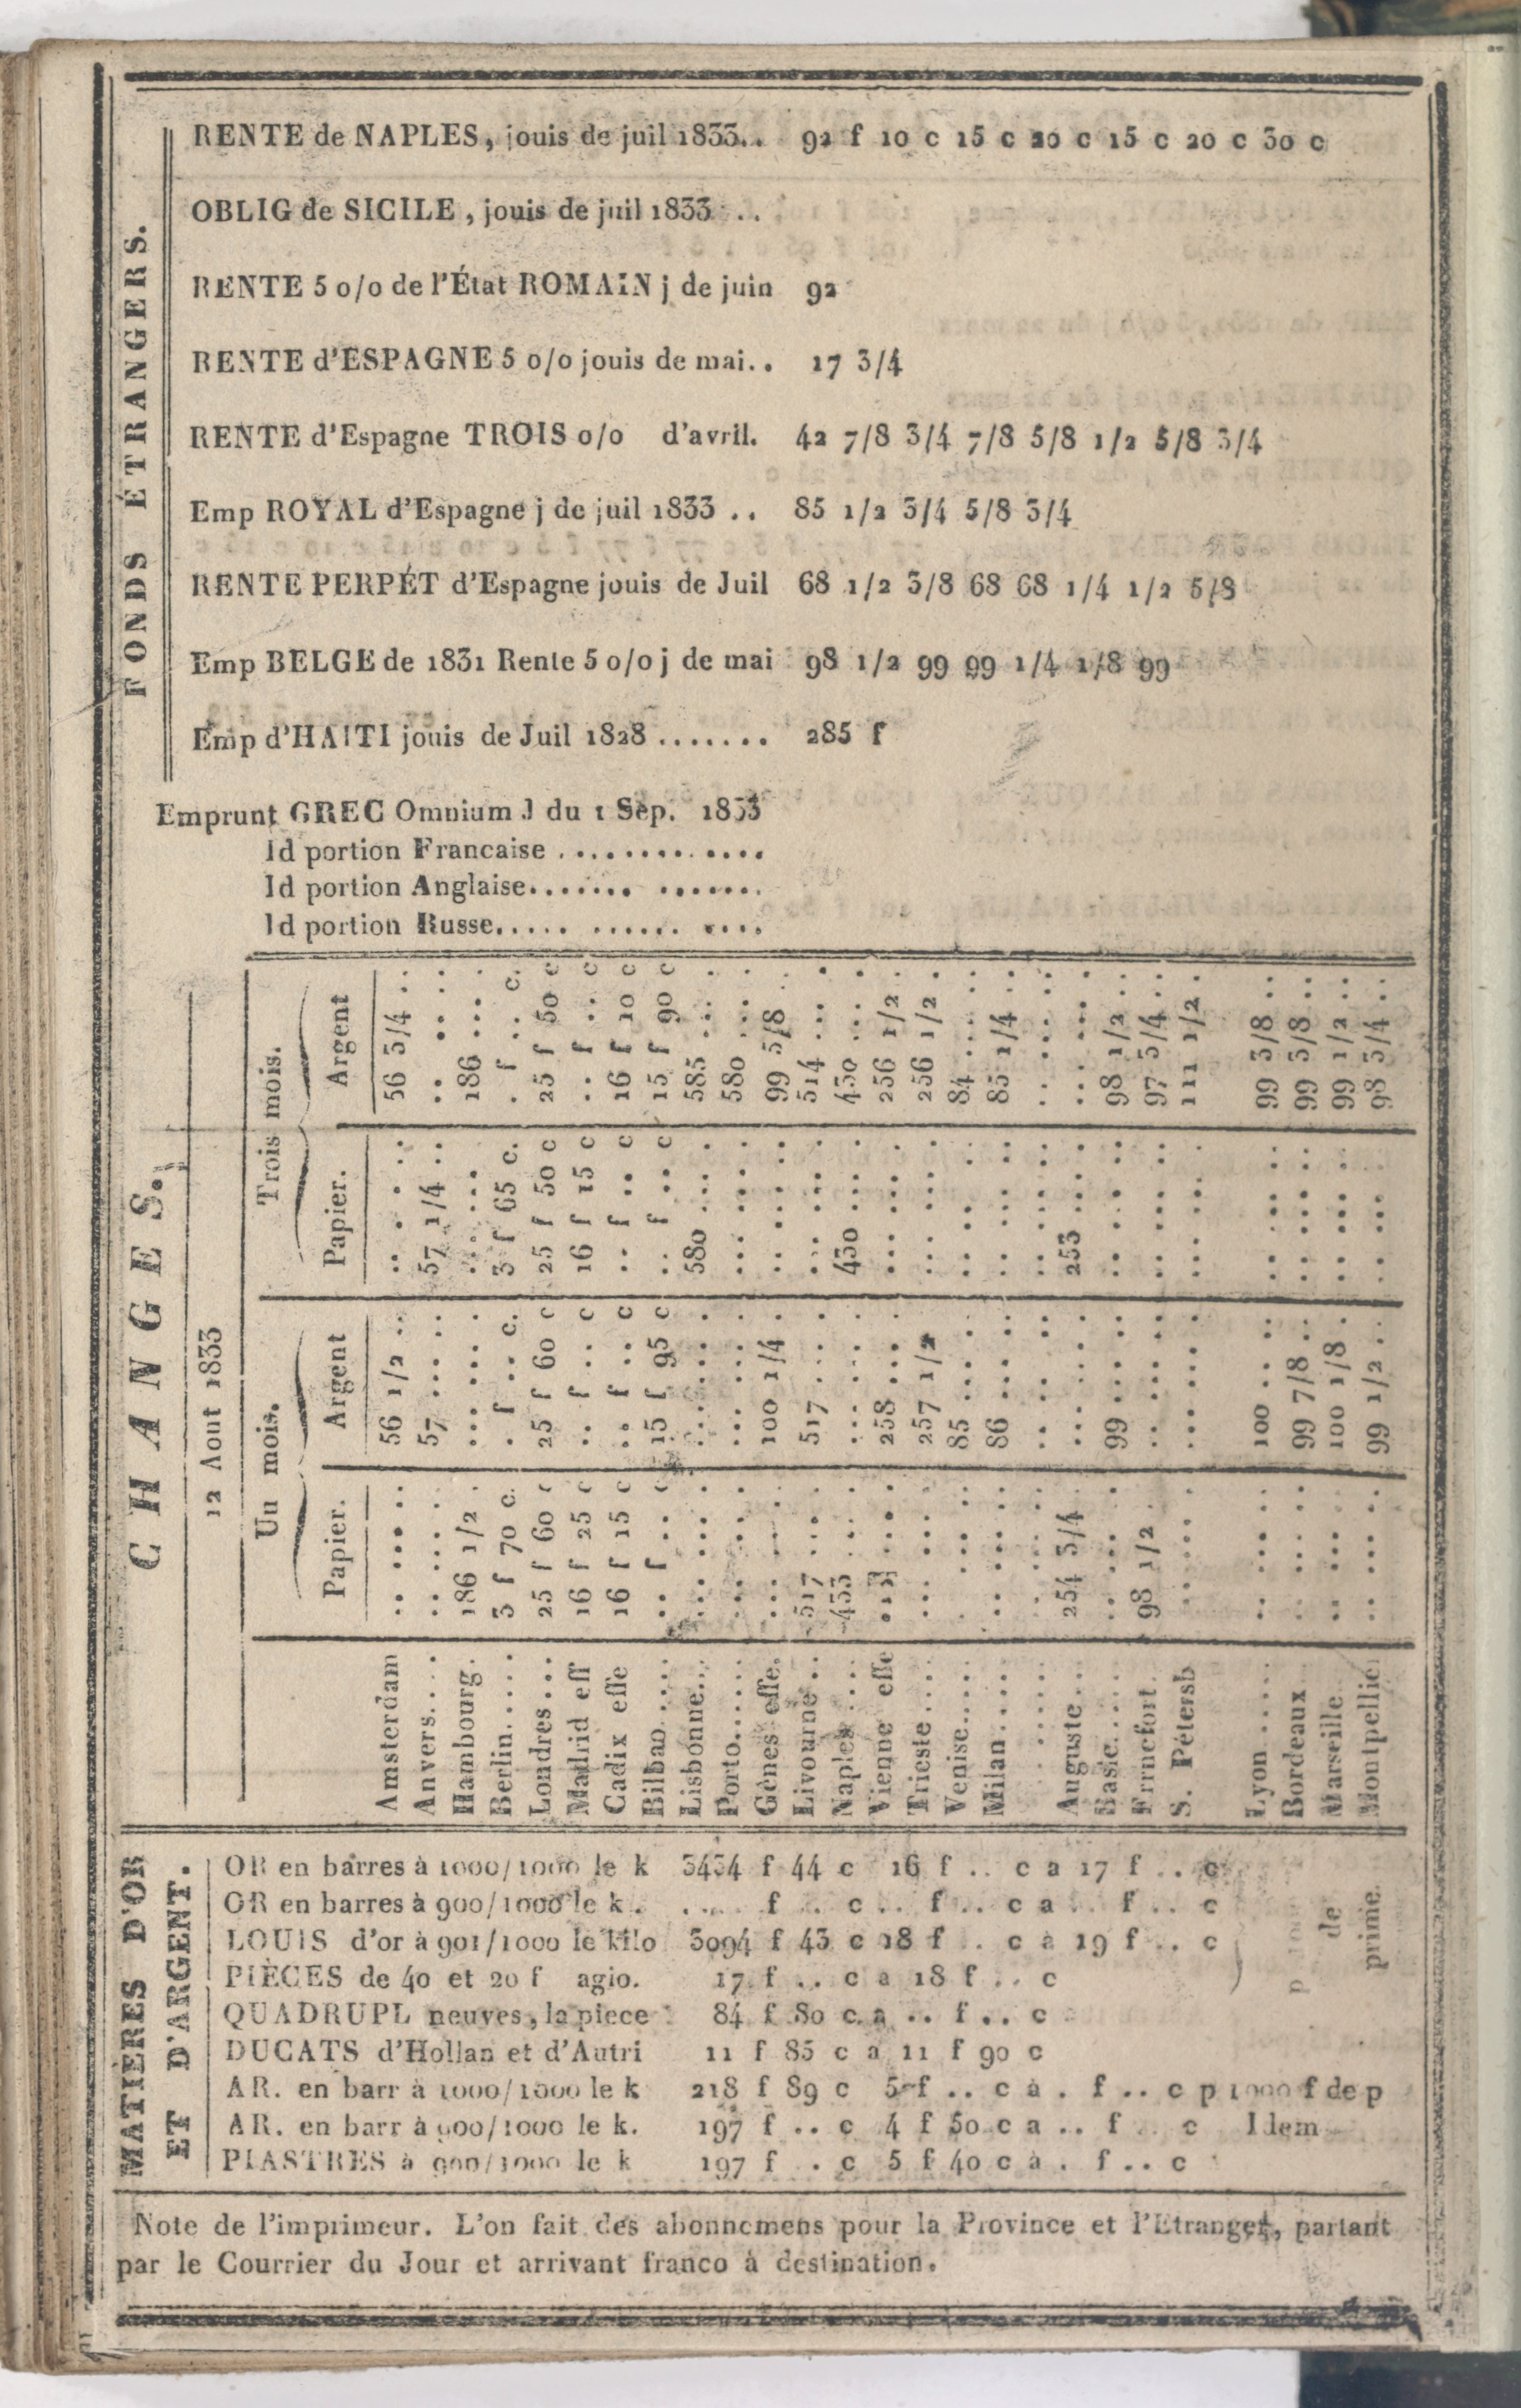 FONDS ÉTRANGERS.
RENTE de NAPLES, jouis de juil 1833.. 92 f 10 c 15 c 20 c 15 c 20 c 30 c
OBLIG de SICILE, jouis de juil 1833 ..
RENTE 5 0/0 de l'État ROMAIN j de juin 92
RENTE d'ESPAGNE 5 0/0 jouis de mai.. 17 3/4
RENTE d'Espagne TROIS 0/0 d'avril. 42 7/8 3/4 7/8 5/8 1/2 5/8 3/4
Emp ROYAL d'Espagne j de juil 1833 .. 85 1/2 3/4 5/8 3/4
RENTE PERPÉT d'Espagne jouis de Juil 68 1/2 3/8 68 68 1/4 1/2 5/8
Emp BELGE de 1831 Rente 5 0/0 j de mai 98 1/2 99 99 1/4 1/8 99
Emp d'HAITI jouis de Juil 1828 ....... 285 f
Emprunt GREC Omnium J du 1 Sep. 1833
Id portion Francaise .............
Id portion Anglaise..............
Id portion Russe...............
CHANGES.
12 Aout 1833
Un mois. Trois mois.
Papier. Argent Papier. Argent
Amsterdam .. .... .. 56 1/2 .. .. . . .. 56 3/4 ..
Anvers.... .. .... . 57 .... .. 57 1/4 .. .. .. ..
Hambourg. 186 1/2 . ... .... . ... ... 186 ... .
Berlin..... 3 f 70 c. . f .. c. 3 f 65 c. . f .. c.
Londres... 25 f 60 c 25 f 60 c 25 f 50 c 25 f 50 c
Madrid eff 16 f 25 c .. f .. c 16 f 15 c .. f .. c
Cadix effe 16 f 15 c .. f .. c .. f .. c 16 f 10 c
Bilbao .... .. f .. c 15 f 95 c .. f .. c 15 f 90 c
Lisbonne... ... ... . ... ... . 580 ... . 585 ... .
Porto...... ... ... . ... ... . ... ... . 580 ... .
Gènes effe. ... ... . 100 1/4 ... ... . 99 5/8 .
Livourne .. 517 ... . 517 ... . ... ... . 514 ... .
Naples .... 433 ... . ... ... . 430 ... . 430 ... .
Vienne effe ... ... . 258 ... . ... ... . 256 1/2 .
Trieste .... ... ... . 257 1/2 ... ... . 256 1/2 .
Venise..... . ... .. 85 ... . .. ... . 84 ... .
Milan ..... .. ... .. 86 ... .. .. ... . 85 1/4 .
Auguste ... 254 3/4 ... ... . 253 ... .. ... ... .
Basle...... .. ... . 99 ... . .. ... .. 98 1/2 ..
Frrncfort. 98 1/2 . .. ... .. .. ... .. 97 3/4 ..
S. Pétersb .. .... ... .... ... ... . 111 1/2 .
Lyon ...... .. ... .. 100 .. .. .. ... .. 99 3/8 ..
Bordeaux .. ... . 99 7/8 .. .. ... .. 99 3/8 ..
Marseille .. ... . 100 1/8 . .. ... .. 99 1/2 ..
Montpellier .. ... .. 99 1/2 .. .. ... . 98 3/4 ..
MATIÈRES D'OR ET D'ARGENT.
OR en barres à 1000/1000 le k 3434 f 44 c 16 f .. c a 17 f .. c
OR en barres à 900/1000 le k . .... f .. c .. f .. c a .. f .. c
LOUIS d'or à 901/1000 le kilo 3094 f 43 c 18 f .. c à 19 f .. c
de prime.
PIÈCES de 40 et 20 f agio. 17 f .. c a 18 f .. c
QUADRUPL neuves, la piece 84 f 80 c a .. f .. c
DUCATS d'Hollan et d'Autri 11 f 85 c a 11 f 90 c
AR. en barr à 1000/1000 le k 218 f 89 c 5 f .. c à . f .. c p 1000 f de p
AR. en barr à 900/1000 le k. 197 f .. c 4 f 50 c a .. f c Idem
PIASTRES à 900/1000 le k 197 f . c 5 f 40 c à . f .. c
Note de l'imprimeur. L'on fait des abonnemens pour la Province et l'Etranger, partant
par le Courrier du Jour et arrivant franco à destination.